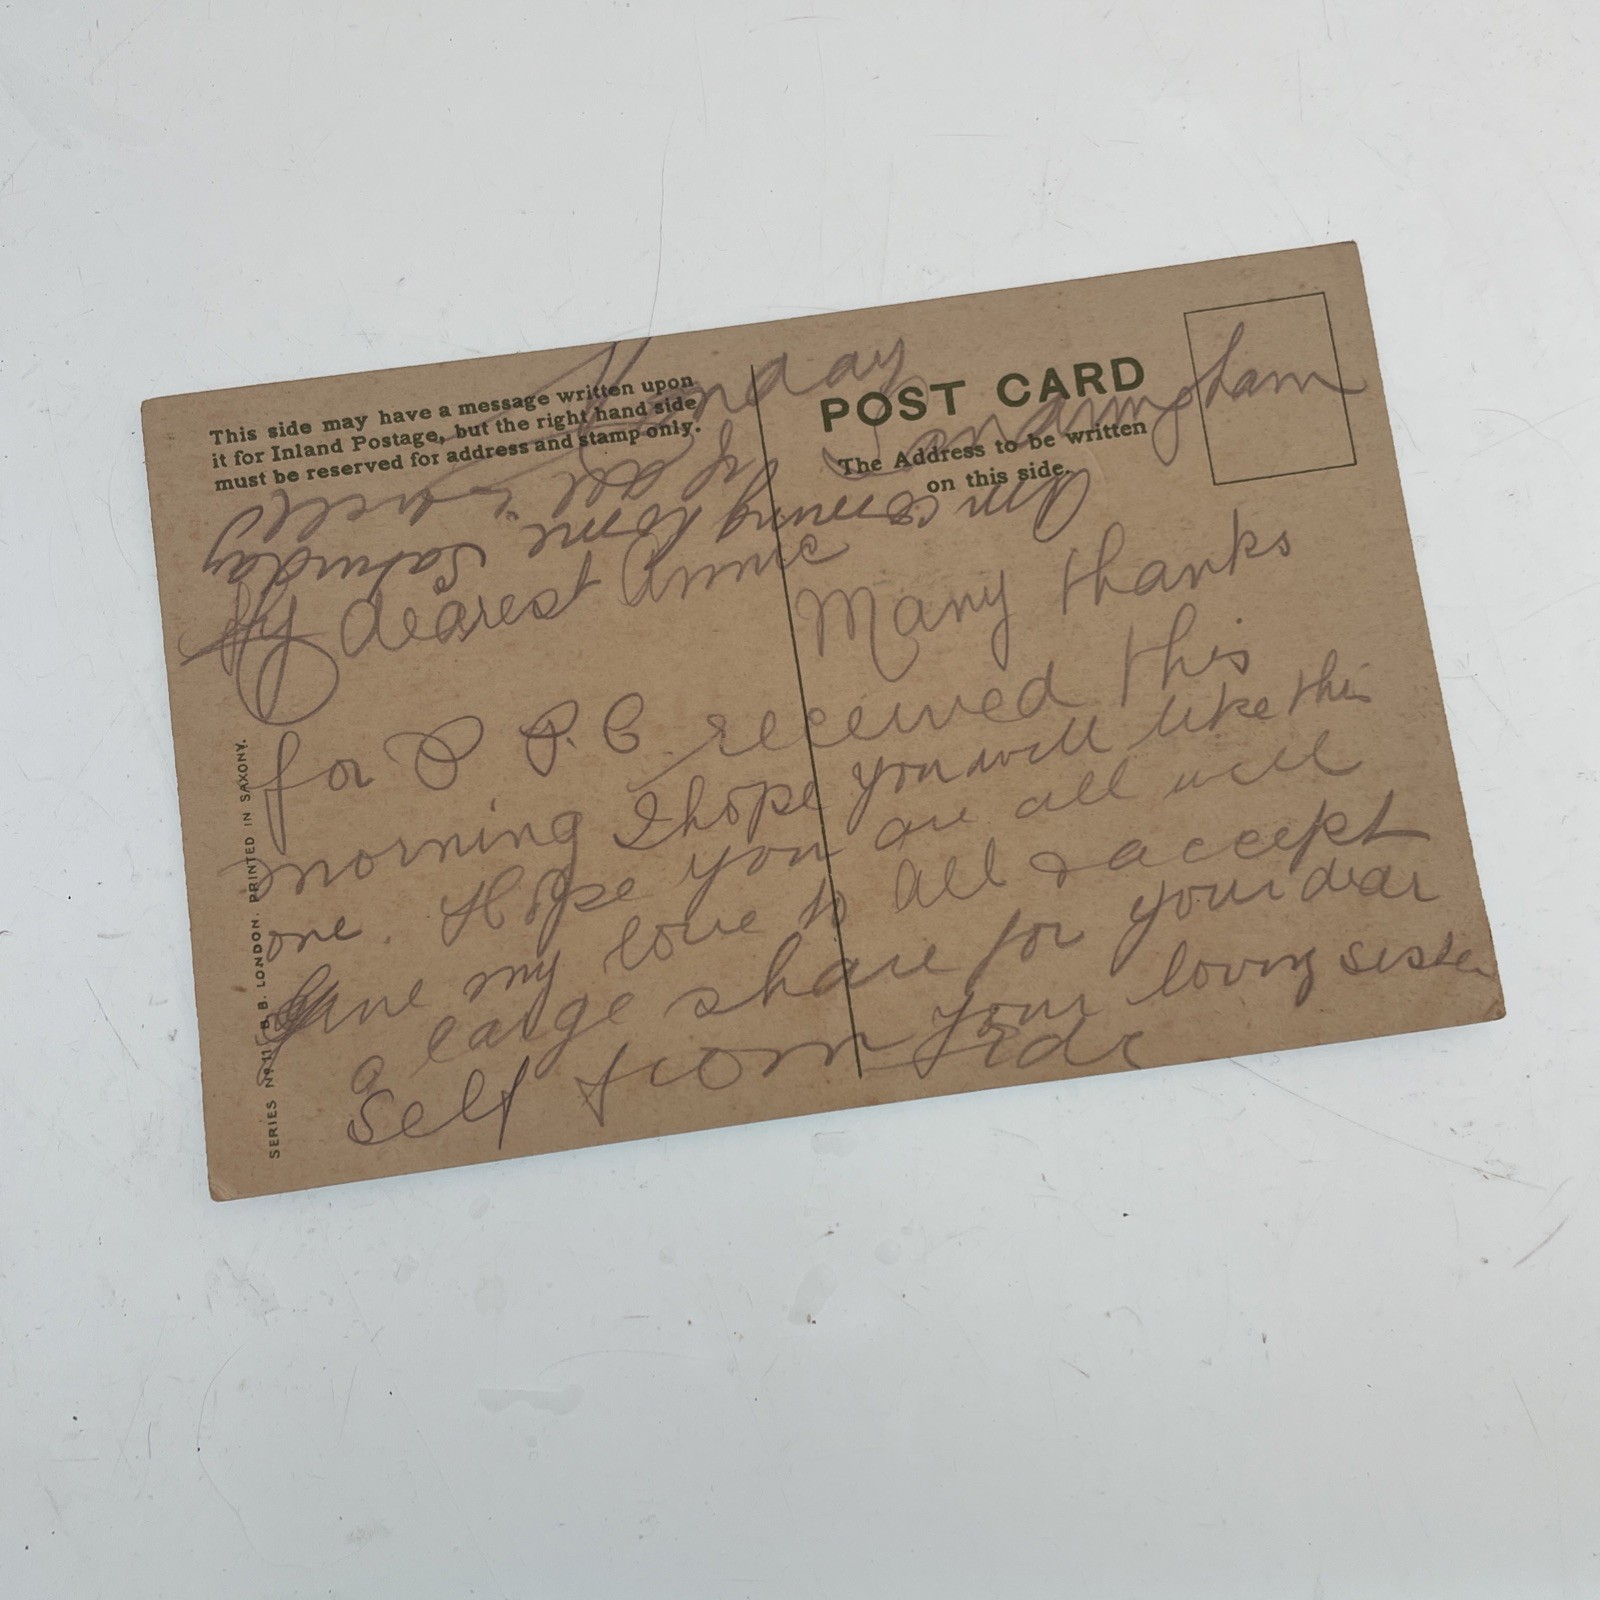 This side may have a message written upon
it for Inland Postage, but the right hand side
must be reserved for address and stamp only.
POST CARD
The Address to be written
on this side.
SERIES No B. B. LONDON. PRINTED IN SAXONY.
Sunday
Sandringham
My dearest Annie
Many thanks
for P. P. C. received this
morning I hope you will like this
one. Hope you are all well
Give my love to all & accept
a large share for your dear
Self from your loving sister
Am coming home Saturday
if all is well